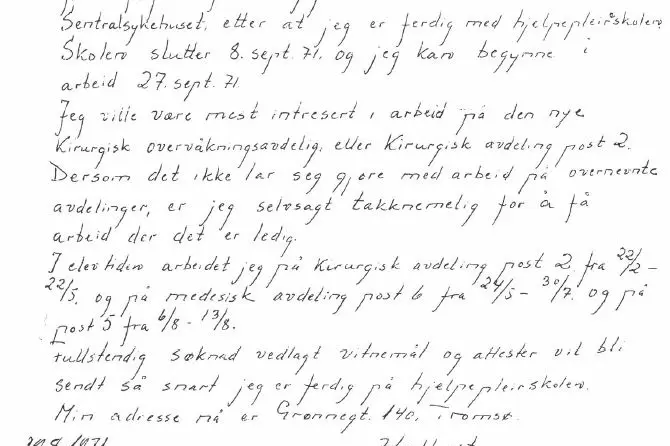 Sentralsykehuset, etter at jeg er ferdig med hjelpepleirskolen.
Skolen slutter 8. sept. 71, og jeg kan begynne i
arbeid 27. sept. 71.
Jeg ville være mest intresert i arbeid på den nye
Kirurgisk overvåkningsavdelig, eller Kirurgisk avdeling post 2.
Dersom det ikke lar seg gjøre med arbeid på overnevnte
avdelinger, er jeg selvsagt takknemelig for å få
arbeid der det er ledig.
I elevtiden arbeidet jeg på Kirurgisk avdeling post 2 fra 22/2 –
22/5, og på medesisk avdeling post 6 fra 24/5 – 30/7, og på
post 5 fra 6/8 – 13/8.
Fullstendig søknad vedlagt vitnemål og attester vil bli
sendt så snart jeg er ferdig på hjelpepleirskolen.
Min adresse nå er Grønnegt. 140, Tromsø.